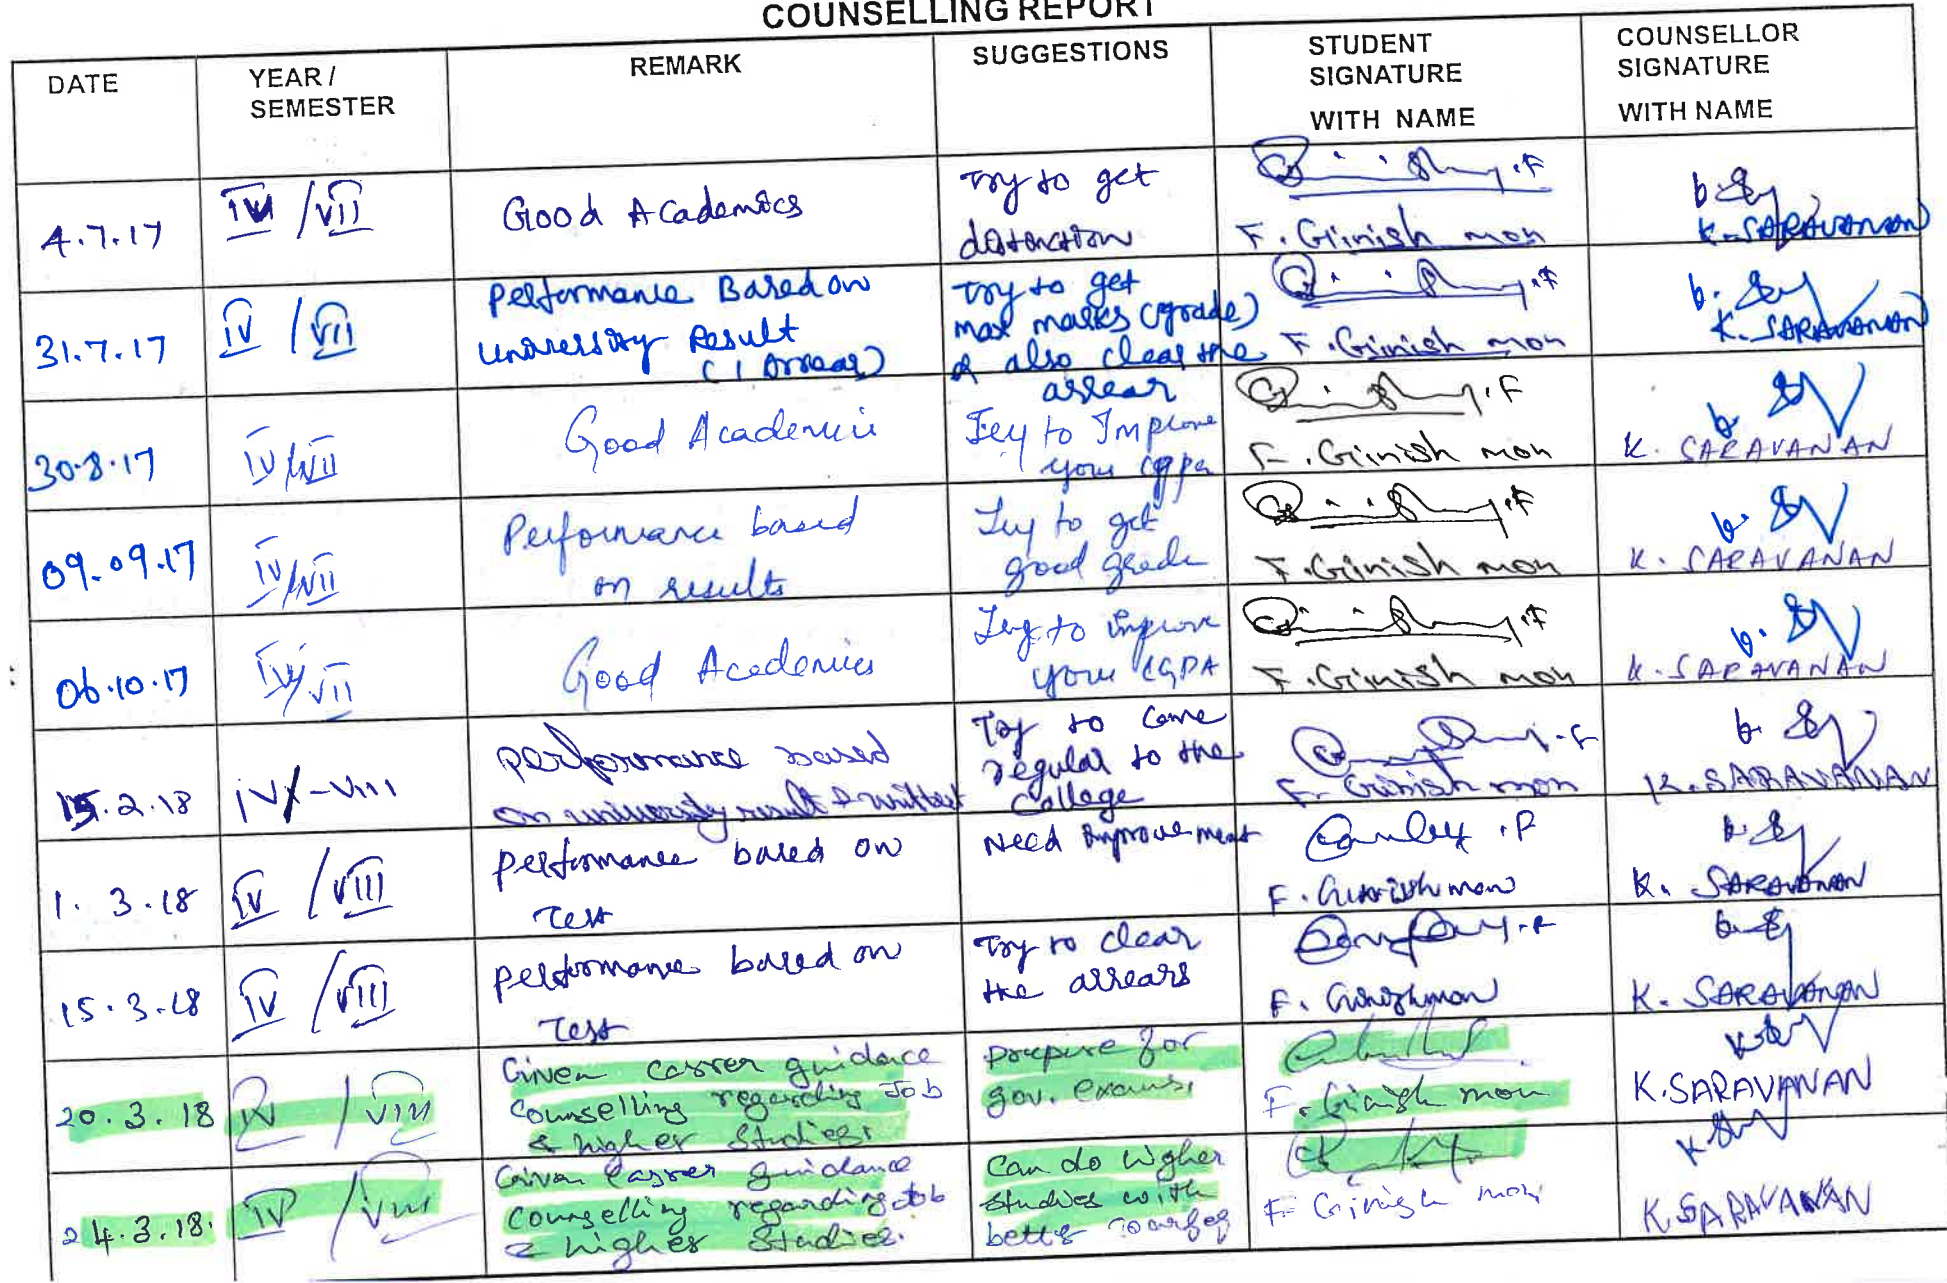 COUNSELLING REPORT
DATE
YEAR /
SEMESTER
REMARK
SUGGESTIONS
STUDENT
SIGNATURE
WITH NAME
COUNSELLOR
SIGNATURE
WITH NAME
4.7.17
IV /VII
Good Academics
Try to get
distinction
F. Ginish mon
K. SARAVANAN
31.7.17
IV /VII
Performance Based on
University Result
(1 Arrear)
Try to get
max marks (grade)
& also clear the
arrear
F. Ginish mon
K. SARAVANAN
30.8.17
IV/VII
Good Academic
Try to Improve
your cgpa
F. Ginish mon
K. SARAVANAN
09.09.17
IV/VII
Performance based
on results
Try to get
good grade
F. Ginish mon
K. SARAVANAN
06.10.17
IV/VII
Good Academics
Try to improve
your CGPA
F. Ginish mon
K. SARAVANAN
15.2.18
IV/-VIII
performance based
on university result &
Try to come
regular to the
College
F. Ginish mon
K. SARAVANAN
1.3.18
IV /VIII
performance based on
Test
Need Improvement
F. Ginish mon
K. SARAVANAN
15.3.18
IV /VIII
performance based on
Test
Try to clear
the arrears
F. Ginishmon
K. SARAVANAN
20.3.18
IV / VIII
Given carrer guidance
counselling regarding Job
& higher Studies.
prepare for
gov. exams.
F. Ginish mon
K.SARAVANAN
24.3.18.
IV /VIII
Given carrer guidance
counselling regarding Job
& higher Studies.
Can do higher
studies with
F Ginish mon
K.SARAVANAN